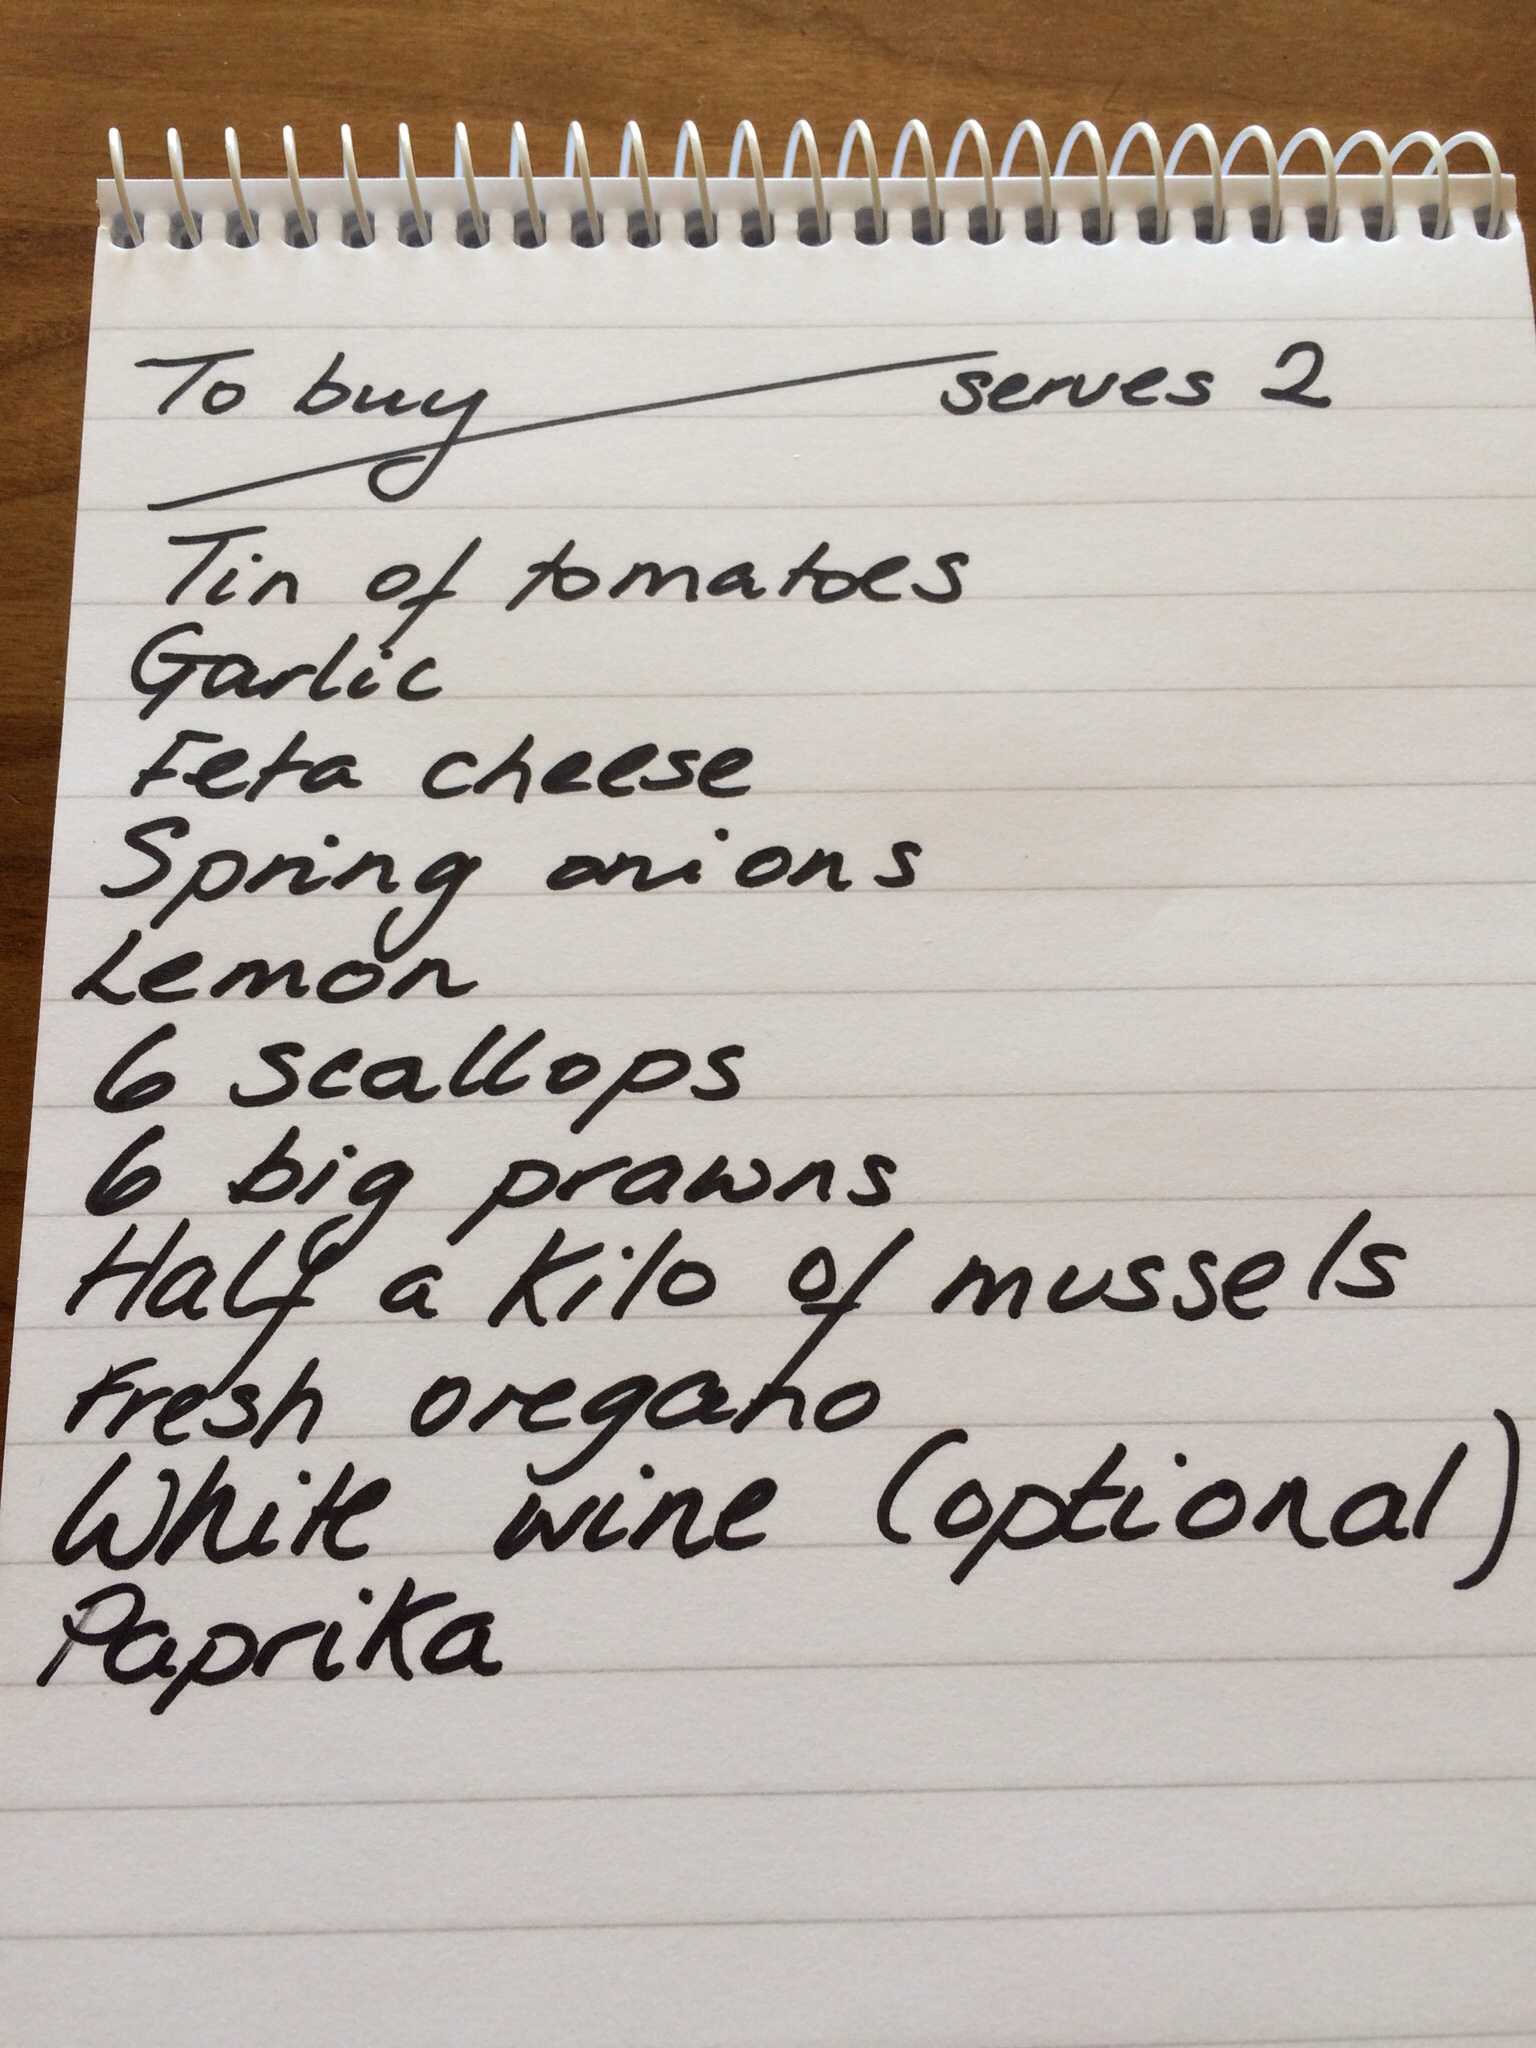 To buy serves 2
Tin of tomatoes
Garlic
Feta cheese
Spring onions
Lemon
6 scallops
6 big prawns
Half a kilo of mussels
Fresh oregano
White wine (optional)
Paprika